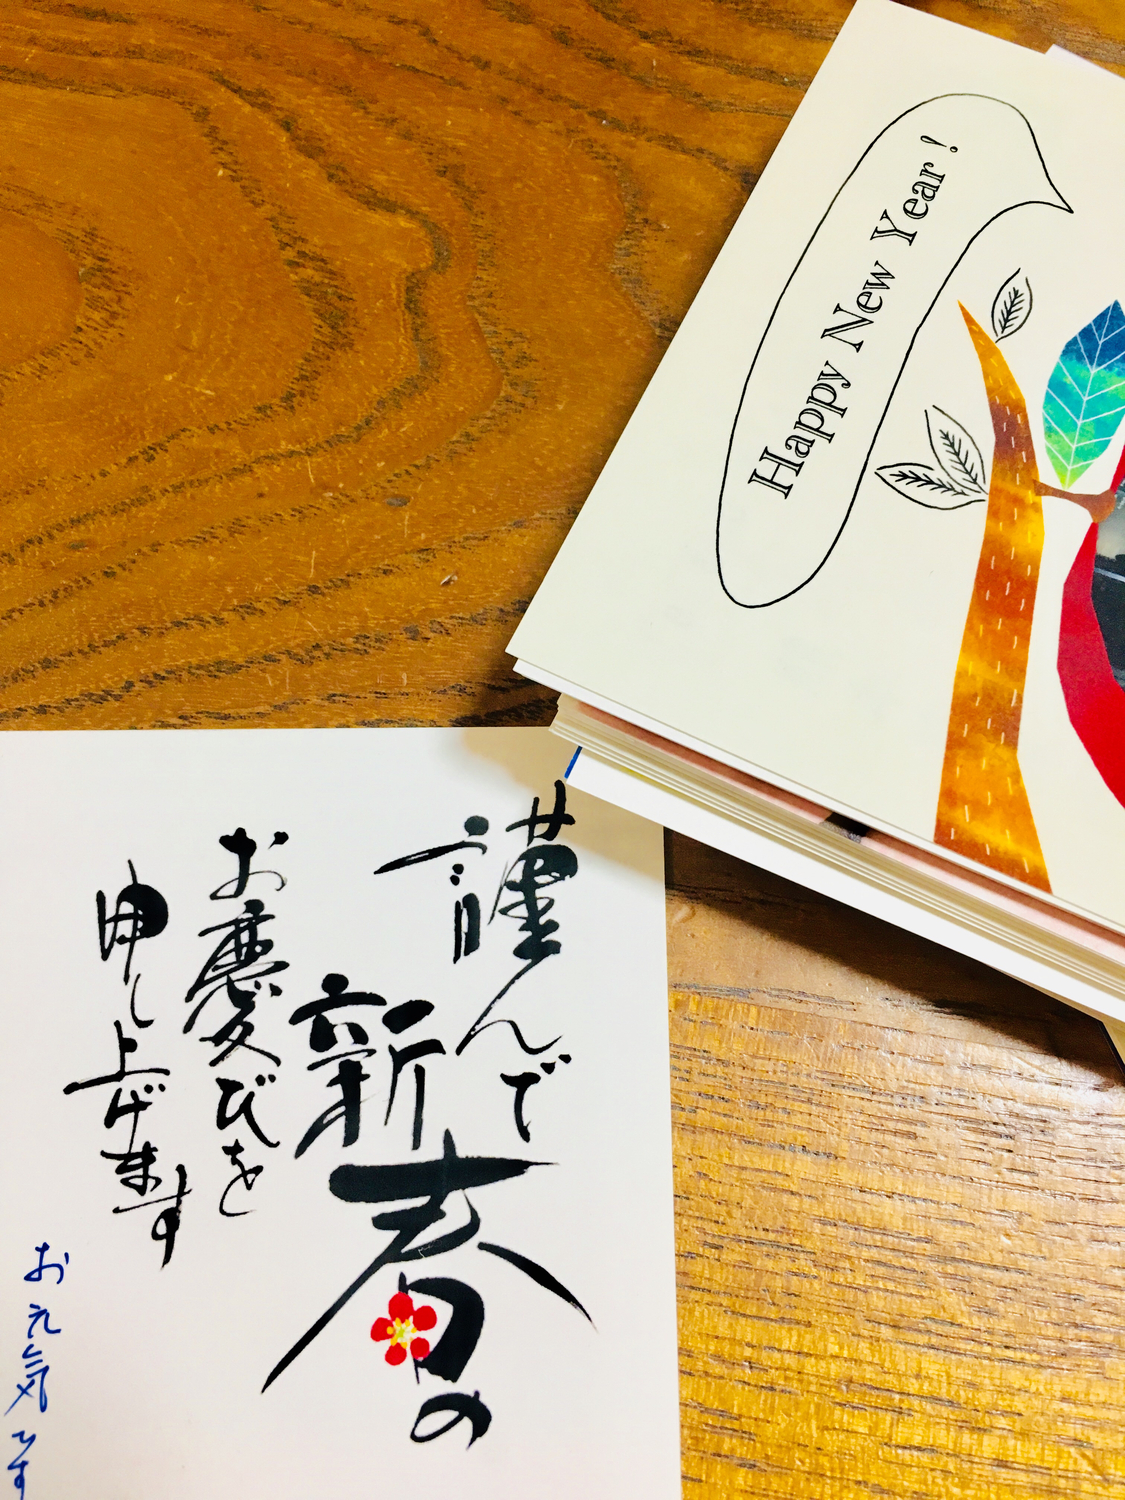 Happy New Year !
謹んで
新春の
お慶びを
申し上げます
お元気です